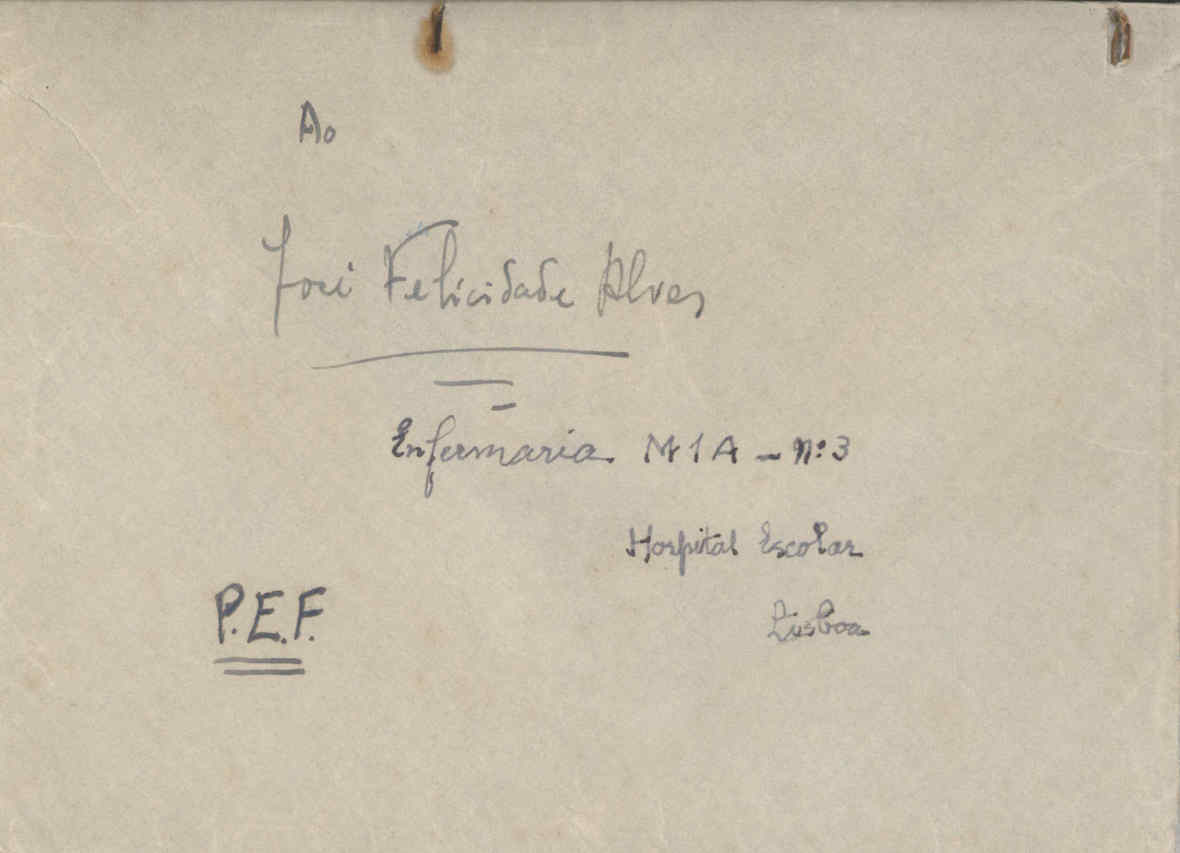 Ao
José Felicidade Alves
Enfermaria M1A - nº 3
Hospital Escolar
Lisboa
P.E.F.